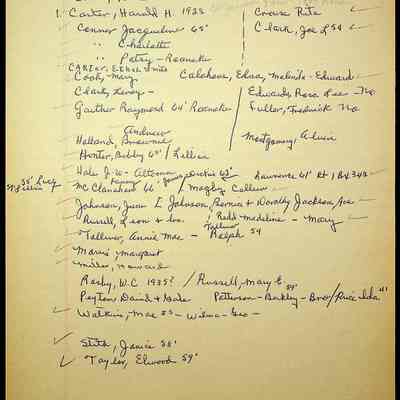 1. Carter, Harold H. 1933
Conner Jacqueline 65'
" Charlotte
" Patsy - Roanoke
CARTER, Ethel & nite
Cook, Mary
Clark, Joe L 54
Calohan, Edna, Melinda - Edward
Clark, Leroy -
Edwards Rosa Lee - No
Gaither Raymond 64' Roanoke
Fuller, Fredrick No
Andrew
Holland, Brownie
Montgomery, Alvin
Hunter, Bobby 65' / Lillian
Hale J. W. - Altamon
Dickie 63'
Lawrence 61' Rt 1 Bx 343
Mc Clanahan 66'
Magby Callum
Johnson, Juan L Johnson, Bernice & Dorothy Jackson, Ave
Russell, Leon & bro.
Redd Madeline - Mary
Tolliver
Tolliver, Annie Mae - Ralph 54
Morris, Margaret
Miller, Howard
Rosby, W.C 1935? / Russell, Mary E 54'
Peyton David & Wade
Patterson - Barkley - Bro / Price Ida 41'
Watkins, Mae 53 - Wilma - Geo -
Stith, Janice 58'
Taylor, Elwood 59'